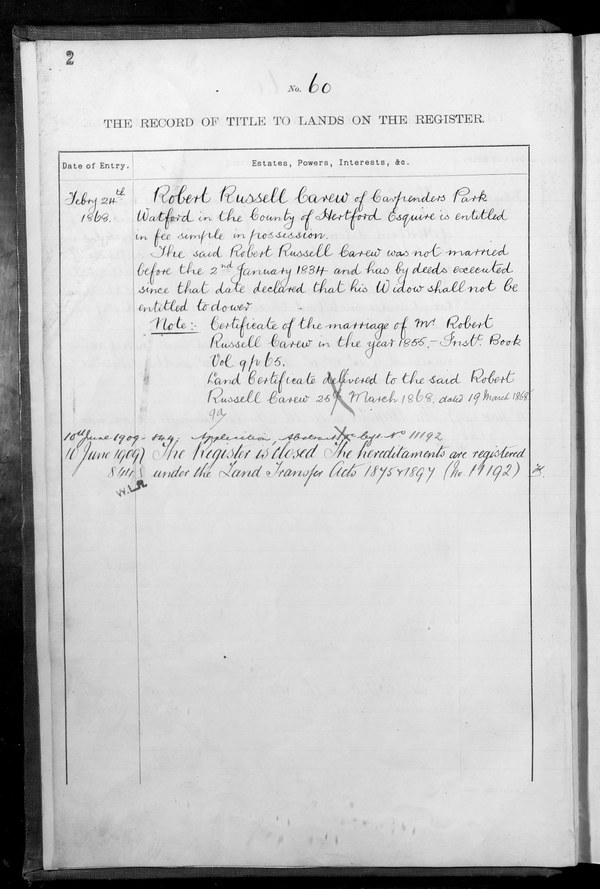 2
No. 60
THE RECORD OF TITLE TO LANDS ON THE REGISTER.
Date of Entry.
Estates, Powers, Interests, &c.
Febry 24th
1868.
Robert Russell Carew of Carpenders Park
Watford in the County of Hertford Esquire is entitled
in fee simple in possession.
The said Robert Russell Carew was not married
before the 2nd January 1834 and has by deeds executed
since that date declared that his Widow shall not be
entitled to dower
Note:- Certificate of the marriage of Mr. Robert
Russell Carew in the year 1855,- Inst. Book
Vol 9 p 65.
Land Certificate delivered to the said Robert
Russell Carew 25th March 1868. dated 19 March 1868.
10th June 1909 - Application, Abstract No 11192
11 June 1909 The Register is closed The hereditaments are registered
under the Land Transfer Acts 1875 & 1897 (No. 11192)
W.L.R